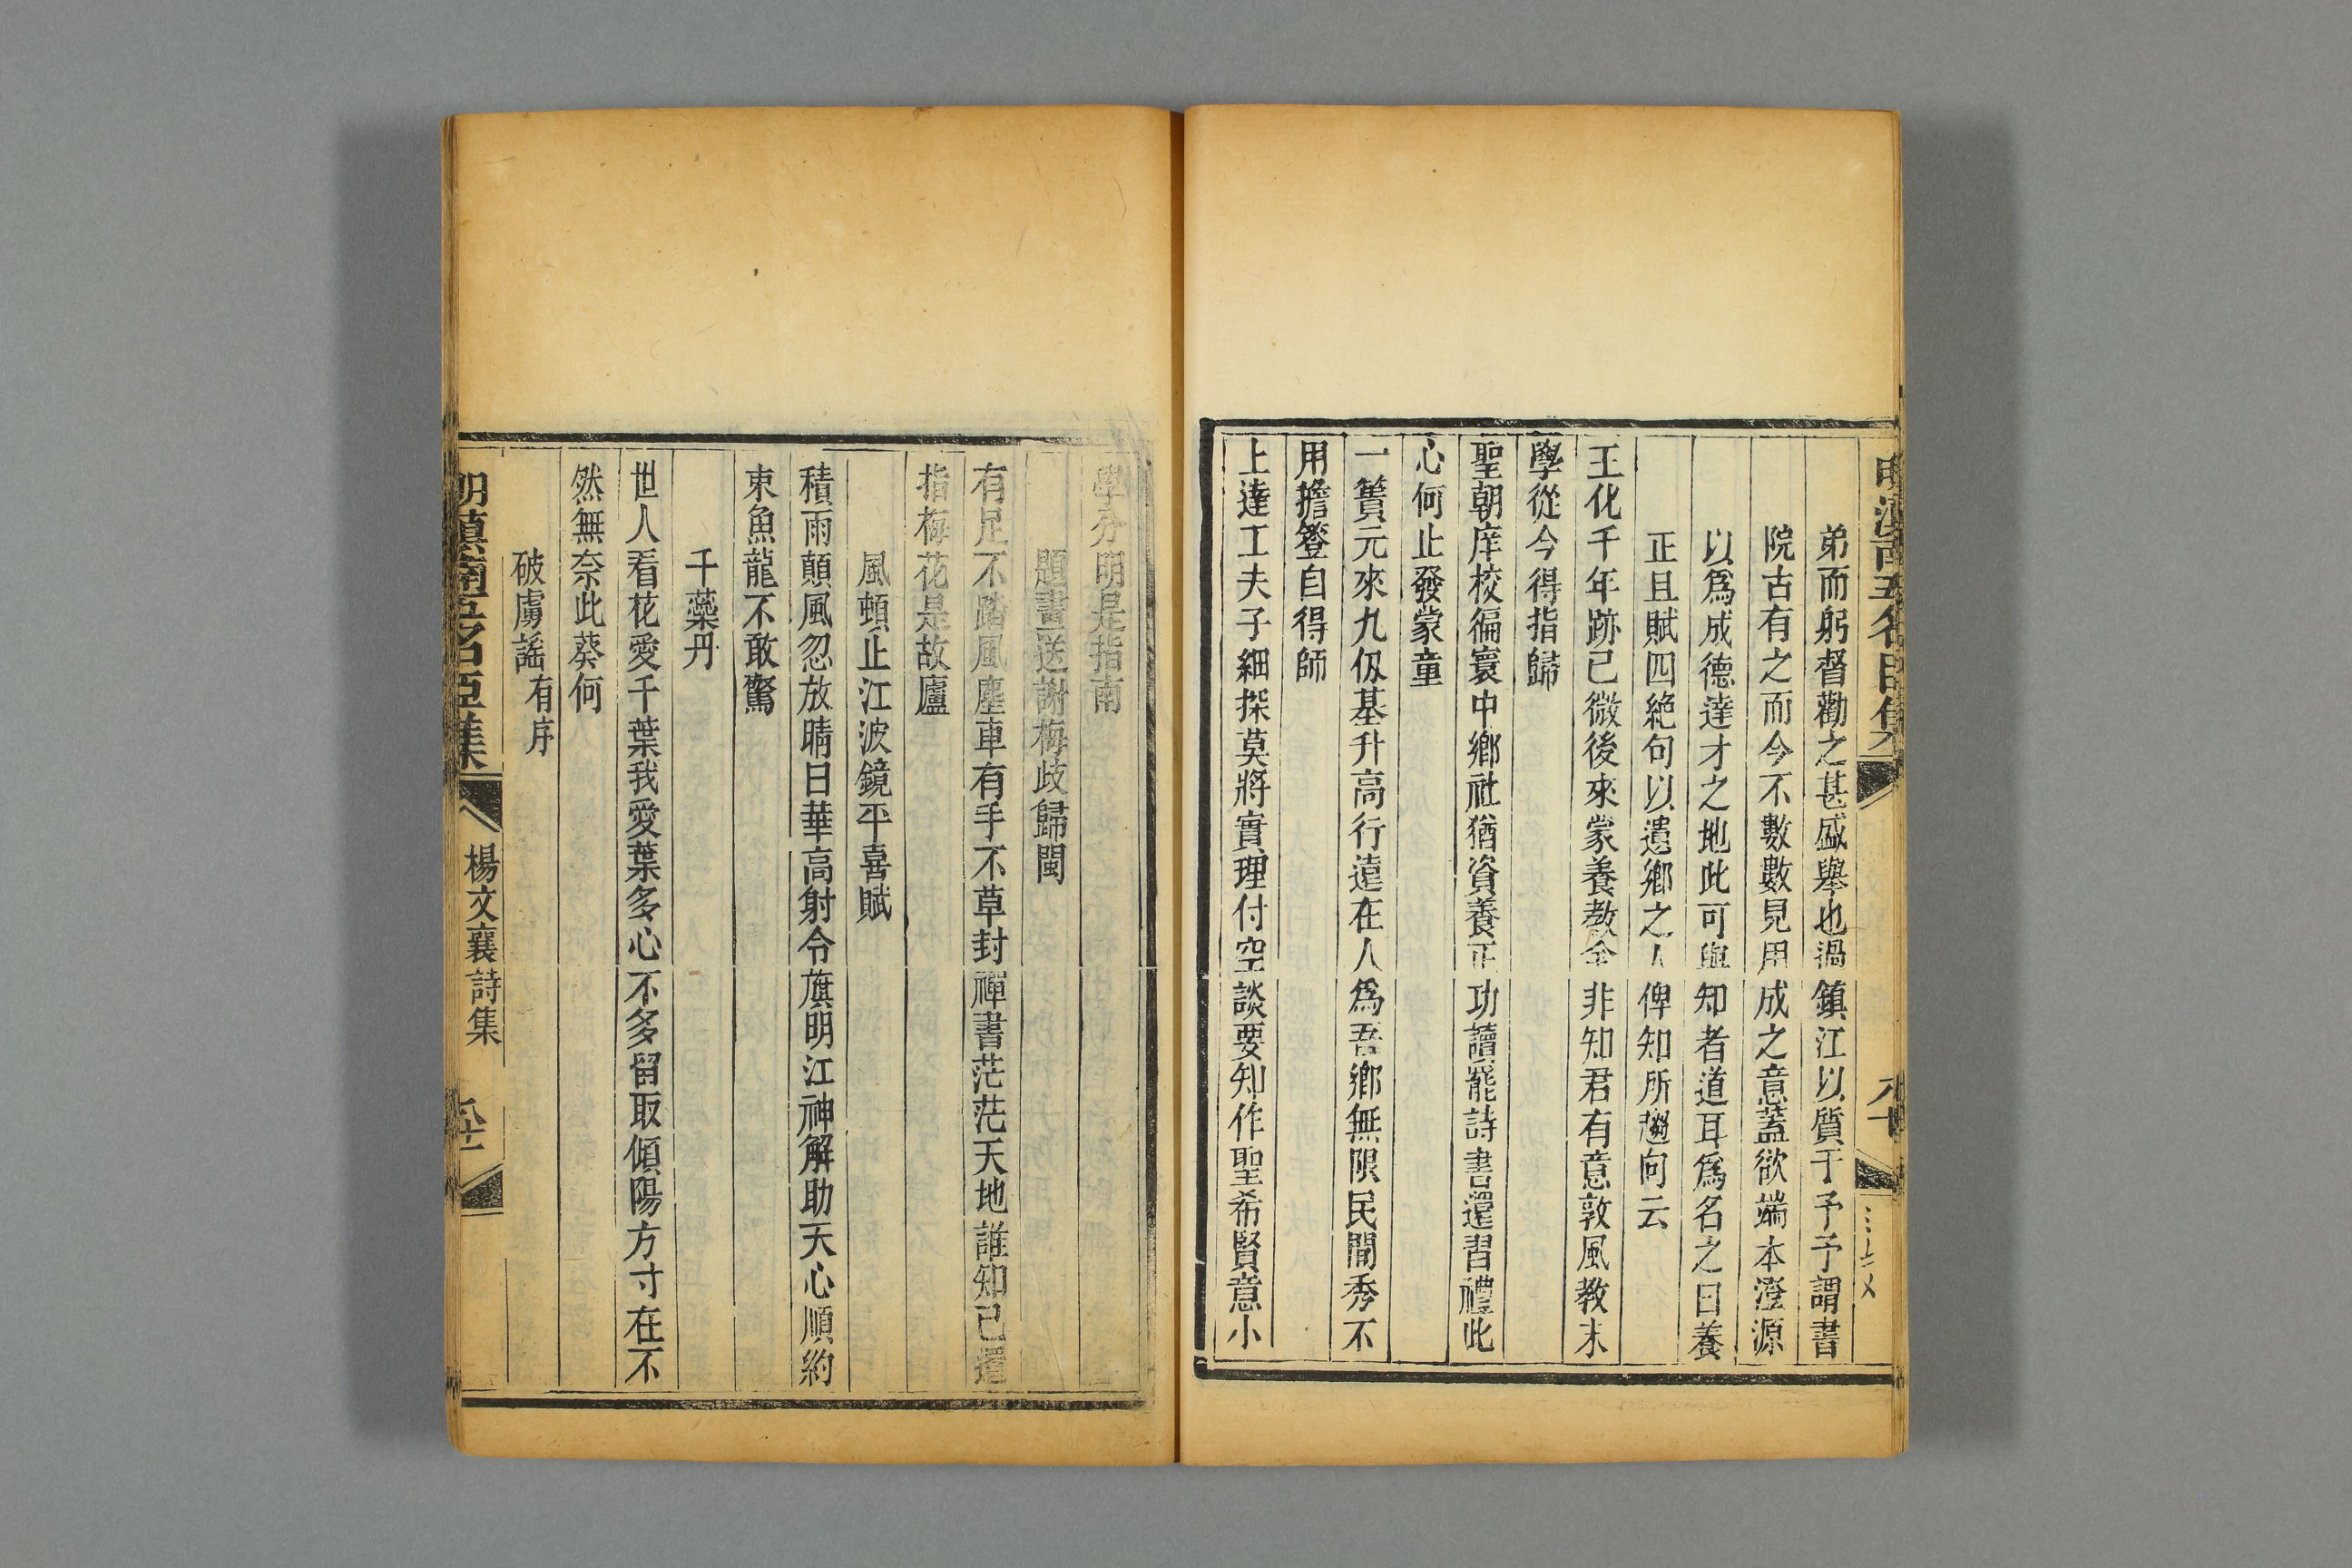 弟而躬督勸之甚盛舉也過鎮江以質于予予謂書
院古有之而今不數數見用成之意蓋欲端本澄源
以爲成德達才之地此可與知者道耳爲名之曰養
正且賦四絶句以遺鄉之人俾知所趨向云
王化千年跡已微後來蒙養教全非知君有意敦風教末
學從今得指歸
聖朝庠校徧寰中鄉社猶資養正功讀罷詩書還習禮此
心何止發蒙童
一簣元來九仭基升高行遠在人爲吾鄉無限民間秀不
用擔簦自得師
上達工夫子細探莫將實理付空談要知作聖希賢意小
學分明是指南
題畫送謝梅歧歸閩
有足不踏風塵車有手不草封禪書茫茫天地誰知已還
指梅花是故廬
風頓止江波鏡平喜賦
積雨顛風忽放晴日華高射令旗明江神解助天心順約
束魚龍不敢驚
千蘂丹
世人看花愛千葉我愛葉多心不多留取傾陽方寸在不
然無奈此葵何
破虜謠有序
明滇南五名臣集
楊文襄詩集